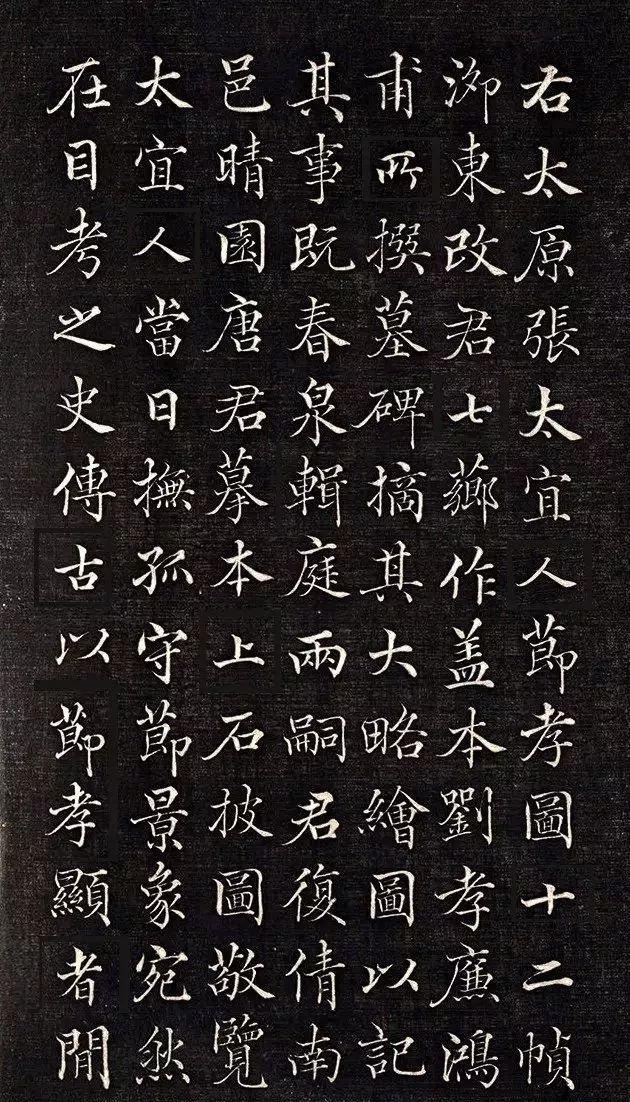 右太原張太宜人莭孝圖十二幀
泖東改君七薌作盖本劉孝廉鴻
甫所撰墓碑摘其大略繪圖以記
其事既春泉輯庭兩嗣君復倩南
邑晴園唐君摹本上石披圖敬覽
太宜人當日撫孤守莭景象宛然
在目考之史傳古以莭孝顯者閒